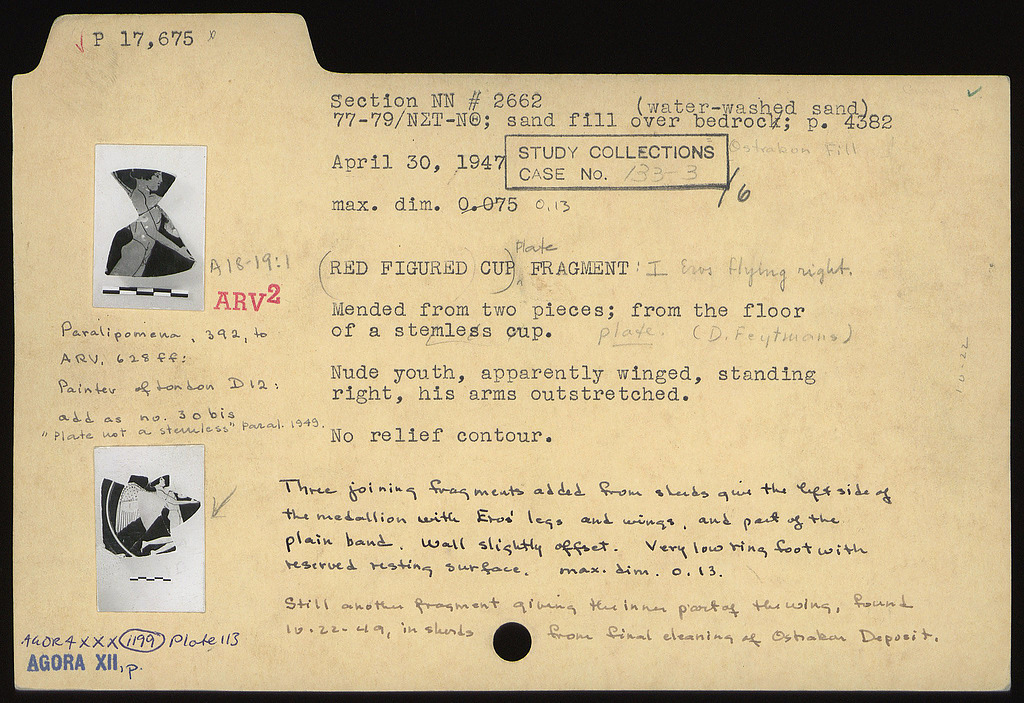 P 17,675 x
Section NN # 2662 (water-washed sand)
77-79/ΝΣΤ-ΝΘ; sand fill over bedrock; p. 4382
Ostrakon Fill
April 30, 1947
STUDY COLLECTIONS
CASE No. 133-3
/6
max. dim. 0.075 0.13
Plate
(RED FIGURED CUP) FRAGMENT: I Eros flying right.
Mended from two pieces; from the floor
of a stemless cup. plate. (D. Feytmans)
Nude youth, apparently winged, standing
right, his arms outstretched.
No relief contour.
A 18-19:1
ARV²
Paralipomena, 392, to
ARV, 628 ff:
Painter of London D12:
add as no. 30 bis
"Plate not a stemless" Paral. 1949.
10-22
Three joining fragments added from sherds give the left side of
the medallion with Eros' legs and wings, and part of the
plain band. Wall slightly offset. Very low ring foot with
reserved resting surface. max. dim. 0.13.
Still another fragment giving the inner part of the wing, found
10-22-49, in sherds from final cleaning of Ostrakon Deposit.
AGORA XXX 1199 Plate 113
AGORA XII, p.